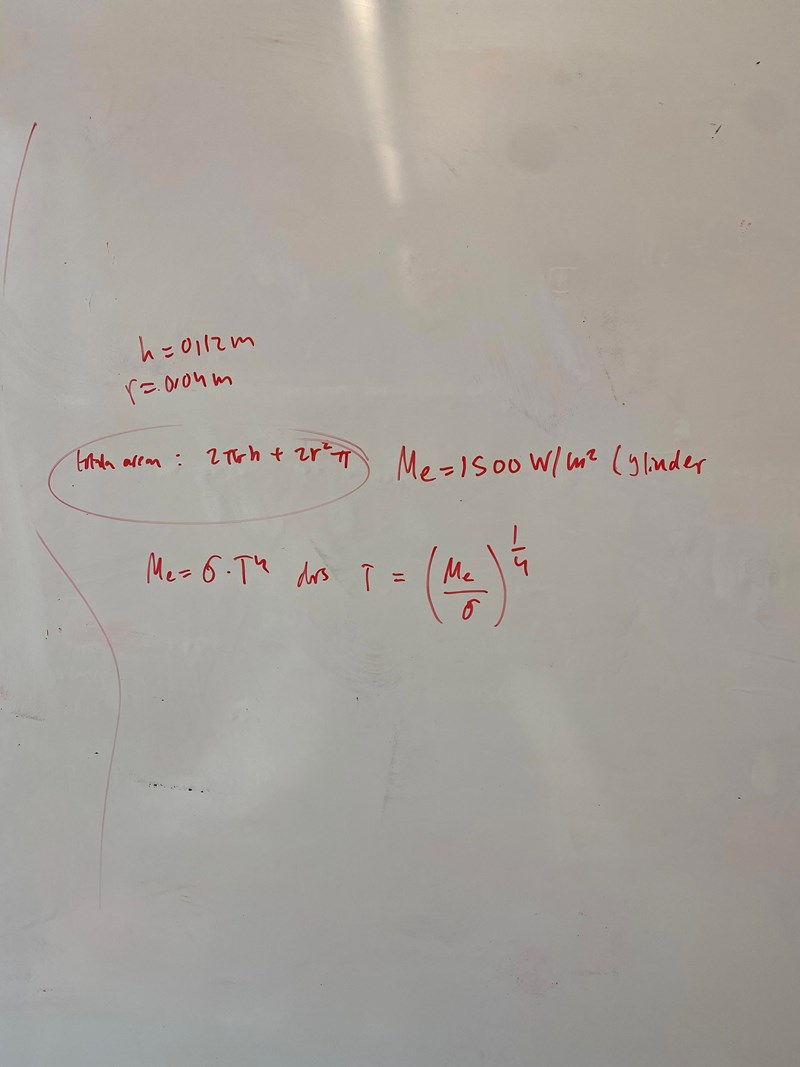 h = 0,12 m
r = 0,04 m
totala arean : 2πrh + 2r²π
Me = 1500 W/m² Cylinder
Me = σ · T⁴ dvs T = (Me/σ)^(1/4)